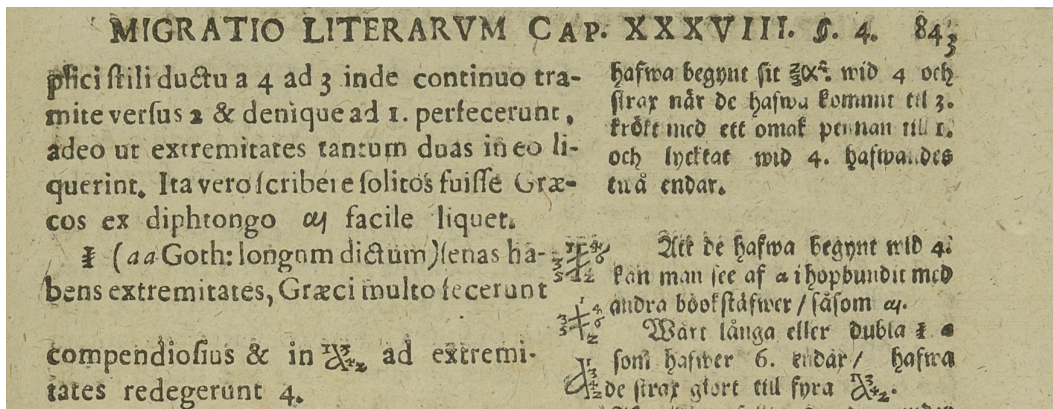 MIGRATIO LITERARVM CAP. XXXVIII. §. 4. 843
pfici stili ductu a 4 ad 3 inde continuo tra-
mite versus 2 & denique ad 1. perfecerunt,
adeo ut extremitates tantum duas in eo li-
querint. Ita vero scribere solitos fuisse Græ-
cos ex diphtongo αι facile liquet.
(aa Goth: longum dictum) senas ha-
bens extremitates, Græci multo fecerunt
compendiosius & in ad extremi-
tates redegerunt 4.
hafwa begynt sit wid 4 och
strax når de hafwa kommit til 3.
krökt med ett omak pennan till 1.
och lycktat wid 4. hafwandes
twå endar.
Att de hafwa begynt wid 4.
kan man see af α ihopbundit med
andra bookstäfwer / såsom αι.
Wårt långa eller dubla
som hafwer 6. endar / hafwa
de strax giort till fyra